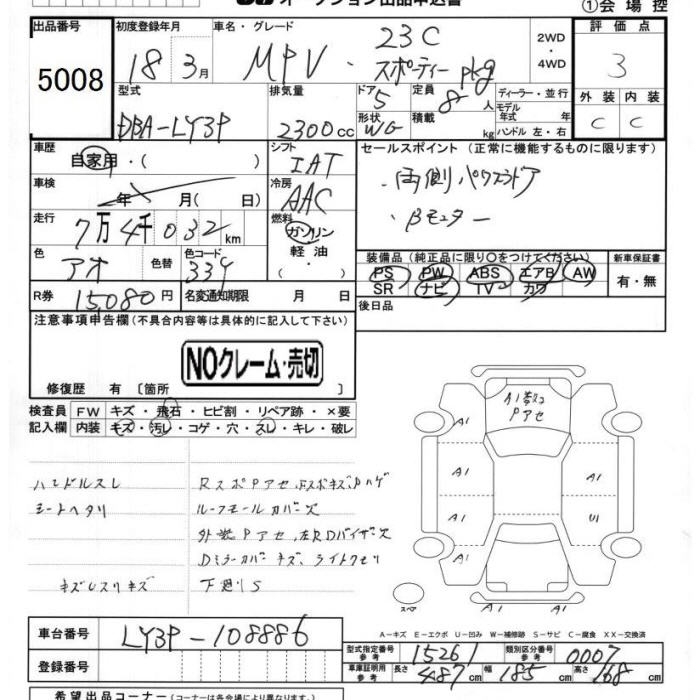 オークション出品申込書
①会場控
出品番号
5008
初度登録年月
18年 3月
車名・グレード
MPV
23C
スポーティー pkg
2WD
・
4WD
評価点
3
外装 内装
C C
型式
DBA-LY3P
排気量
2300cc
ドア
5
形状
WG
定員
8人
積載
kg
ディーラー・並行
モデル
年式 年
ハンドル 左・右
車歴
自家用・( )
シフト
IAT
セールスポイント (正常に機能するものに限ります)
・両側パワースライドドア
・Bモニター
車検
年 月( 日)
冷房
AAC
走行
7万4千032km
燃料
ガソリン
軽油
・( )
色
アオ
色替
色コード
334
装備品(純正品に限り○をつけてください)
PS PW ABS エアB AW
SR ナビ TV カワ
新車保証書
有・無
R券
15080円
名変通知期限 月 日
後日品
注意事項申告欄(不具合内容等は具体的に記入して下さい)
NOクレーム・売切
修復歴 有 [箇所 ]
検査員
記入欄
FW キズ・飛石・ヒビ割・リペア跡・×要
内装 キズ・汚レ・コゲ・穴・スレ・キレ・破レ
ハンドルスレ
シートヘタリ
キズレスリキズ
RスポPアセ
ルーフモールカバー欠
外装Pアセ,左RDバイザー欠
Dミラーカバーキズ,ライトクモリ
下廻りS
A1
Pアセ
A1
A1
A1
A1
U1
A1
A1
スペア
A-キズ E-エクボ U-凹み W-補修跡 S-サビ C-腐食 XX-交換済
車台番号
LY3P-108886
登録番号
型式指定番号
参考
15261
類別区分番号
参考
0007
車庫証明用
参考
長さ
487cm
幅
185cm
高さ
168cm
希望出品コーナー(コーナーは各会場により異なります)